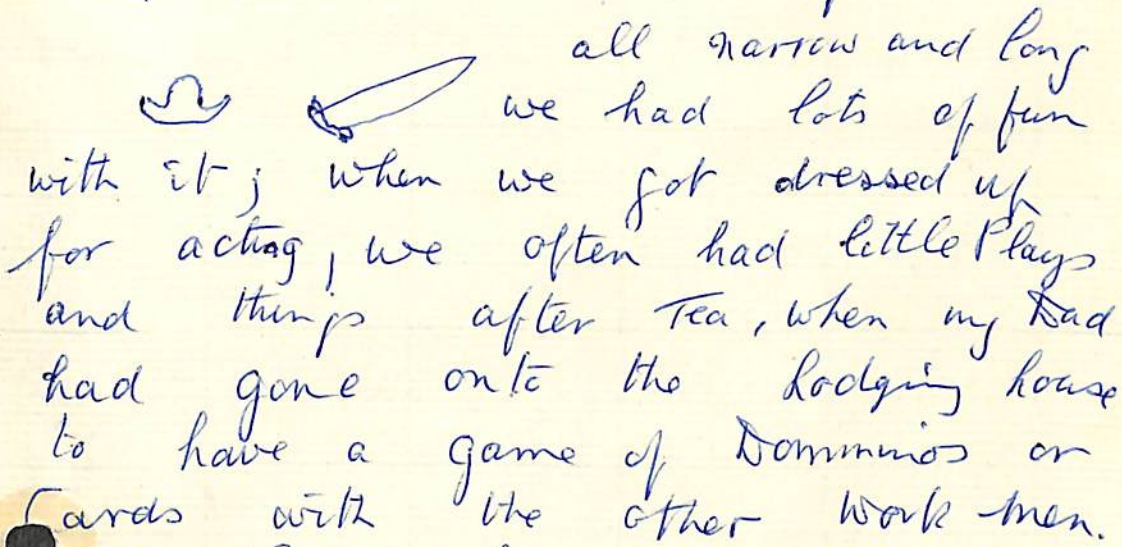 all narrow and long
we had lots of fun
with it; when we got dressed up
for acting, we often had little Plays
and things after Tea, when my Dad
had gone onto the Lodging house
to have a game of Domminos or
Cards with the other work men.